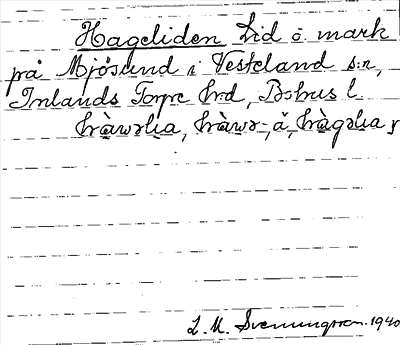 Hageliden Lid o. mark
på Mjösund i Vesteland s:n,
Inlands Torpe hrd, Bohus l.
hràwəlia, hràwə-, å, hràgəlia,
L. M. Svenungsson. 1940